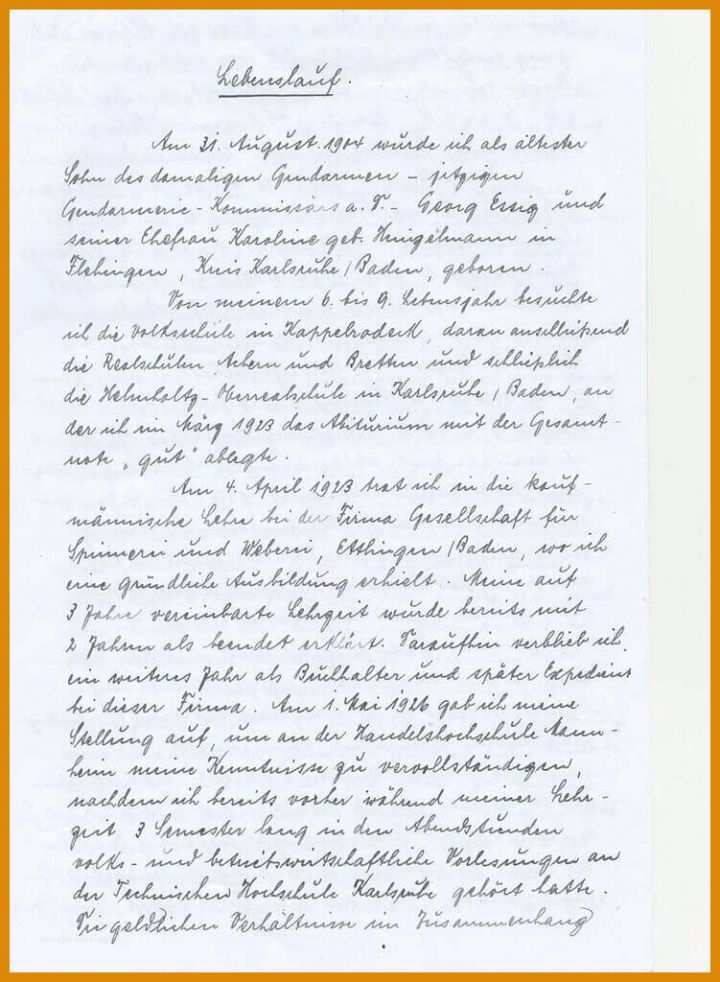 Lebenslauf.
Am 31. August. 1904 wurde ich als ältester
Sohn des damaligen Gendarmen – jetzigen
Gendarmerie-Kommissärs a. D. – Georg Essig und
seiner Ehefrau Karoline geb. in
Flehingen, Kreis Karlsruhe / Baden, geboren.
Von meinem 6. bis 9. Lebensjahr besuchte
ich die Volksschule in Kappelrodeck, daran anschließend
die Realschulen Achern und Bretten und schließlich
die Helmholtz-Oberrealschule in Karlsruhe / Baden, an
der ich im März 1923 das Abiturium mit der Gesamt-
note „gut" ablegte.
Am 4. April 1923 trat ich in die kauf-
männische Lehre bei der Firma Gesellschaft für
Spinnerei und Weberei, Ettlingen / Baden, wo ich
eine gründliche Ausbildung erhielt. Meine auf
3 Jahre vereinbarte Lehrzeit wurde bereits mit
2 Jahren als beendet erklärt. Daraufhin verblieb ich
ein weiteres Jahr als Buchhalter und später Expedient
bei dieser Firma. Am 1. Mai 1926 gab ich meine
Stellung auf, um an der Handelshochschule Mann-
heim meine Kenntnisse zu vervollständigen,
nachdem ich bereits vorher während meiner Lehr-
zeit 3 Semester lang in den Abendstunden
volks- und betriebswirtschaftliche Vorlesungen an
der Technischen Hochschule Karlsruhe gehört hatte.
Die geldlichen Verhältnisse im Zusammenhang